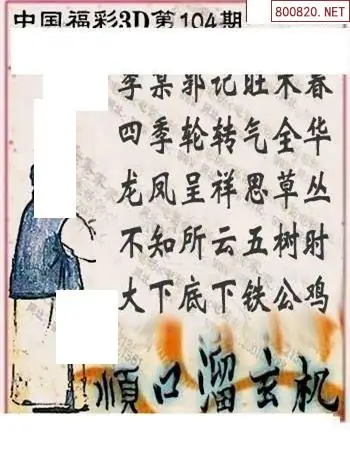 中国福彩3D第104期
800820.NET
李某郭记旺木春
四季轮转气全华
龙凤呈祥思草丛
不知所云五树时
大下底下铁公鸡
順口溜玄机